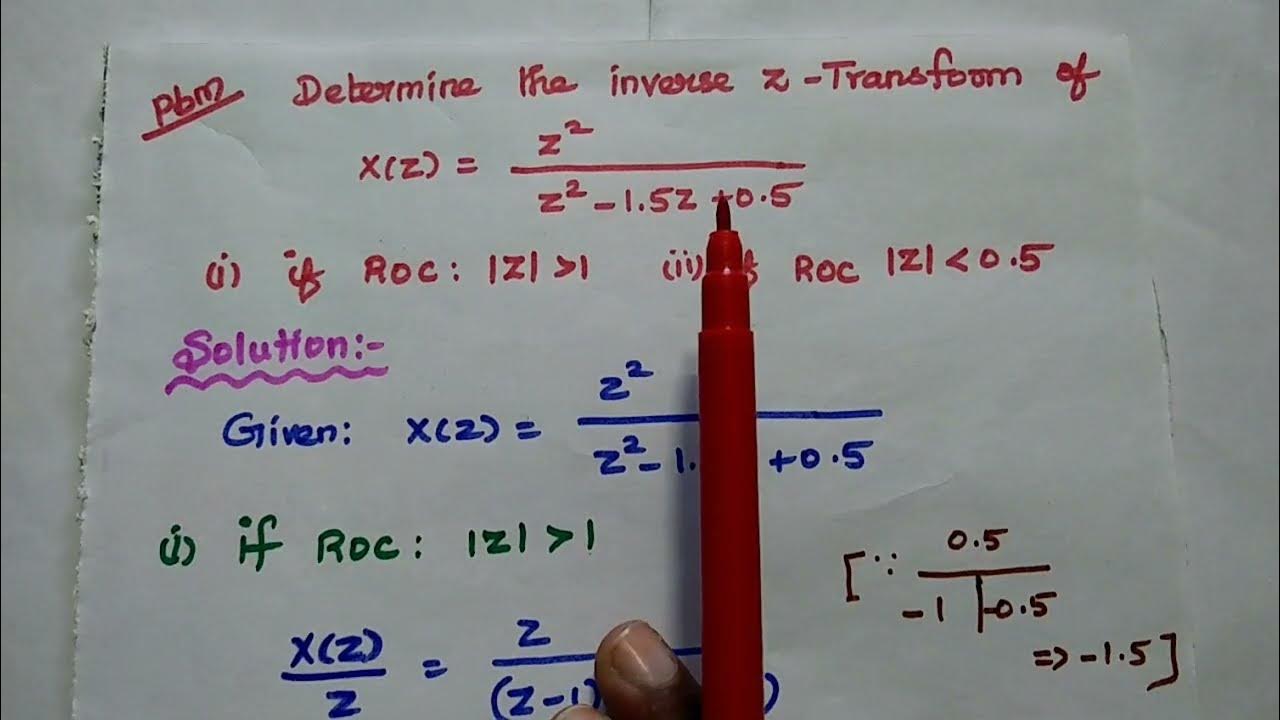 Pbm Determine the inverse z-Transform of
X(z) = z² / z² - 1.5z +0.5
(i) if ROC: |z| >1 (ii) if ROC |z| < 0.5
Solution:-
Given: X(z) = z² / z² - 1. +0.5
(i) if ROC: |z| >1
[∵ 0.5
-1 | -0.5
⇒ -1.5]
X(z) / z = z / (z-1) )